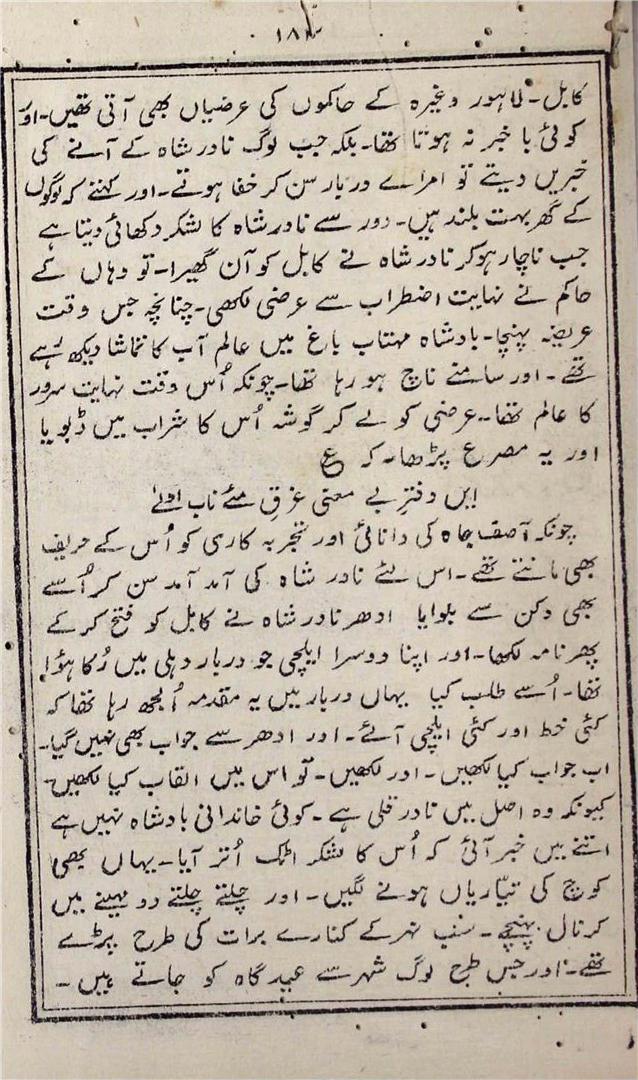 ۱۸۳
کابل۔ لاہور وغیرہ کے حاکموں کی عرضیاں بھی آتی تھیں۔ اور
کوئی با خبر نہ ہوتا تھا۔ بلکہ جب لوگ نادر شاہ کے آنے کی
خبریں دیتے تو امراے دربار سن کر خفا ہوتے۔ اور کہتے کہ لوگوں
کے گھر بہت بلند ہیں۔ دور سے نادر شاہ کا لشکر دکھائی دیتا ہے
جب ناچار ہوکر نادر شاہ نے کابل کو آن گھیرا۔ تو وہاں کے
حاکم نے نہایت اضطراب سے عرضی لکھی۔ چنانچہ جس وقت
عریضہ پہنچا۔ بادشاہ مہتاب باغ میں عالم آب کا تماشا دیکھ رہے
تھے۔ اور سامنے ناچ ہو رہا تھا۔ چونکہ اُس وقت نہایت سرور
کا عالم تھا۔ عرضی کو لے کر گوشہ اُس کا شراب میں ڈبویا
اور یہ مصرع پڑھا۔ کہ ع
ایں دفترِ بے معنی غرقِ مئے ناب اولےٰ
چونکہ آصف جاہ کی دانائی اور تجربہ کاری کو اُس کے حریف
بھی مانتے تھے۔ اس لئے نادر شاہ کی آمد آمد سن کر اُسے
بھی دکن سے بلوایا ادھر نادر شاہ نے کابل کو فتح کر کے
پھر نامہ لکھا۔ اور اپنا دوسرا ایلچی جو دربار دہلی میں رُکا ہؤا
تھا۔ اُسے طلب کیا یہاں دربار میں یہ مقدمہ اُلجھ رہا تھا کہ
کئی خط اور کئی ایلچی آئے۔ اور ادھر سے جواب بھی نہیں گیا۔
اب جواب کیا لکھیں۔ اور لکھیں۔ تو اس میں القاب کیا لکھیں۔
کیونکہ وہ اصل میں نادر قلی ہے۔ کوئی خاندانی بادشاہ نہیں ہے
اتنے میں خبر آئی کہ اُس کا لشکر اٹک اُتر آیا۔ یہاں بھی
کوچ کی تیّاریاں ہونے لگیں۔ اور چلتے چلتے دو مہینے میں
کرنال پہنچے۔ سب نہر کے کنارے برات کی طرح پڑے
تھے۔ اور جس طرح لوگ شہر سے عید گاہ کو جاتے ہیں۔